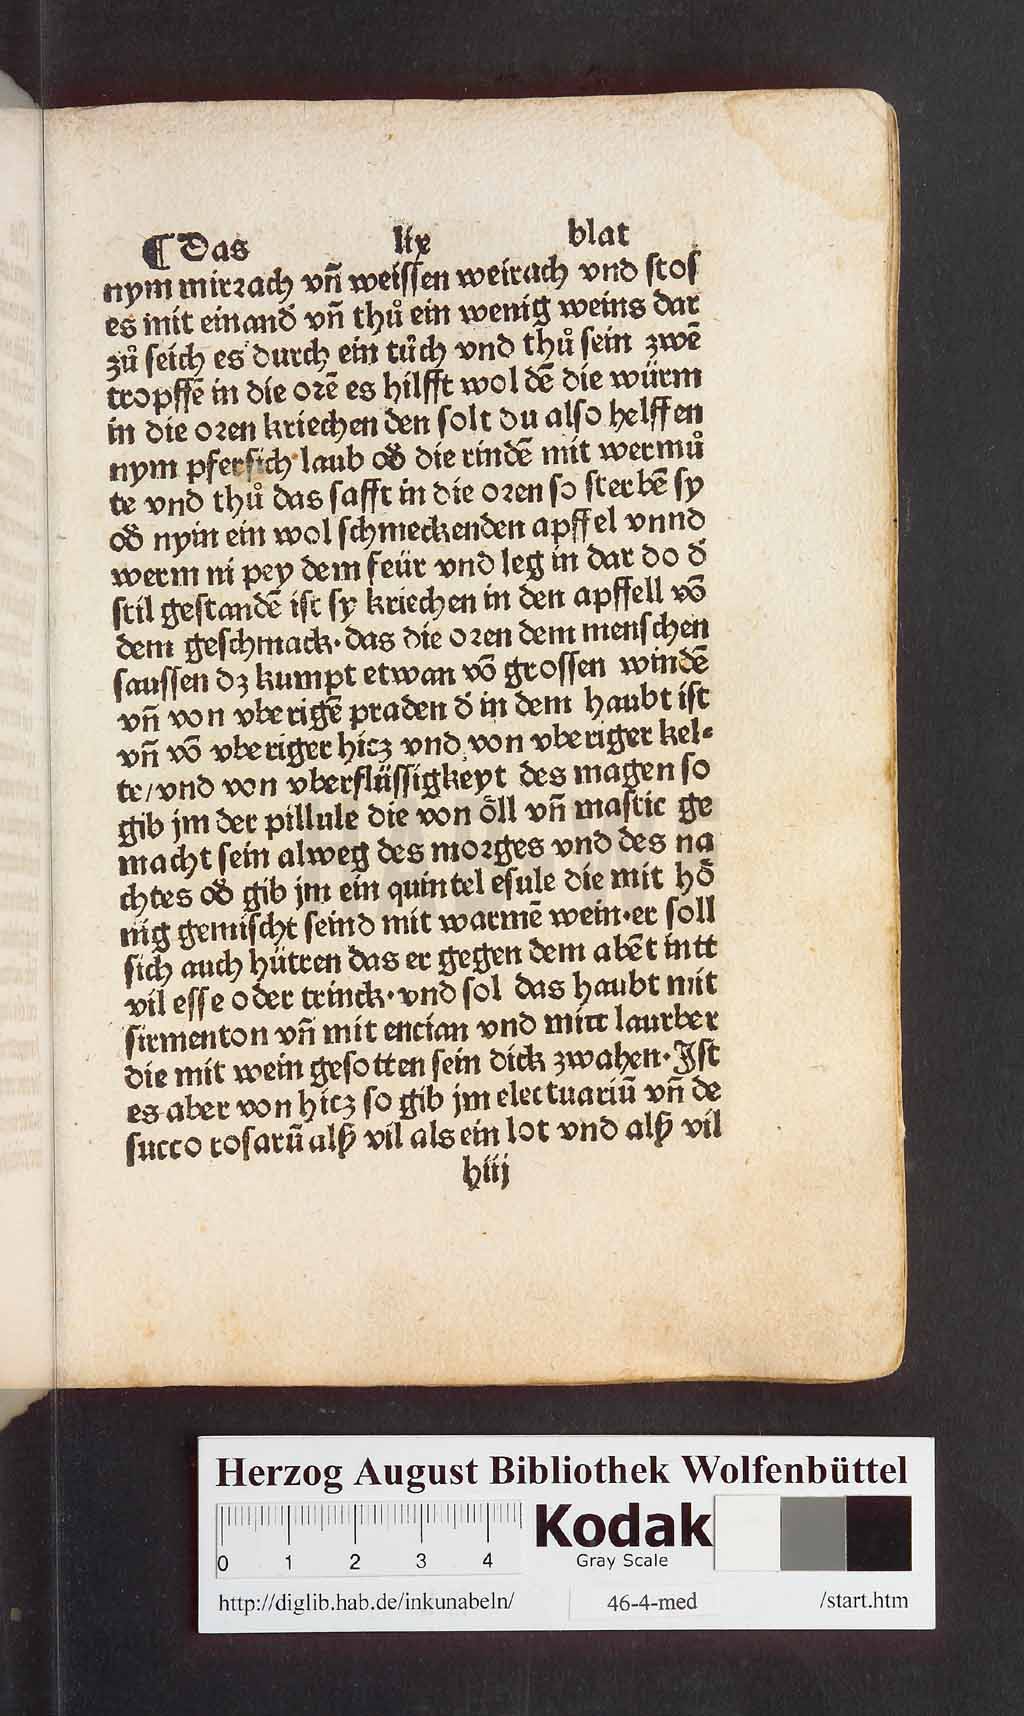 ¶ Das lix blat
nym mirꝛach vn̄ weissen weirach vnd stos
es mit einand̄ vn̄ thů ein wenig weins dar
zů seich es durch ein tůch vnd thů sein zwē
tropffē in die oꝛē es hilfft wol dē die würm
in die oꝛen kriechen den solt du also helffen
nym pfersich laub od̄ die rindē mit wermů
te vnd thů das safft in die oꝛen so sterbē sy
od̄ nym ein wol schmeckenden apffel vnnd
werm in pey dem feür vnd leg in dar do d̄
stil gestandē ist sy kriechen in den apffell vō
dem geschmack. das die oꝛen dem menschen
saussen dz kumpt etwan vō grossen windē
vn̄ von vberigē praden d̄ in dem haubt ist
vn̄ vō vberiger hicz vnd von vberiger kel⸗
te/vnd von vberflüssigkeyt des magen so
gib jm der pillule die von ȯll vn̄ mastic ge
macht sein alweg des moꝛges vnd des na
chtes od̄ gib jm ein quintel esule die mit hȯ
nig gemischt seind mit warmē wein.er soll
sich auch hütten das er gegen dem abēt nitt
vil esse oder trinck.vnd sol das haubt mit
sirmenton vn̄ mit encian vnd mitt laurber
die mit wein gesotten sein dick zwahen. Ist
es aber von hicz so gib jm electuariū vn̄ de
succo rosarū alß vil als ein lot vnd alß vil
hiij
Herzog August Bibliothek Wolfenbüttel
0 1 2 3 4
Kodak
Gray Scale
http://diglib.hab.de/inkunabeln/ 46-4-med /start.htm